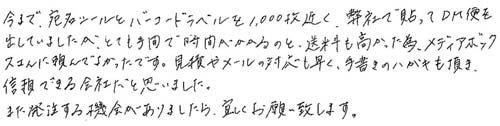 今まで、宛名シールとバーコードラベルを1,000枚近く、弊社で貼ってDM便を
出していましたが、とても手間で時間がかかるのと、送料も高かった為、メディアボック
スさんに頼んでよかったです。見積やメールの対応も早く、手書きのハガキも頂き、
信頼できる会社だと思いました。
また発注する機会がありましたら、宜しくお願い致します。